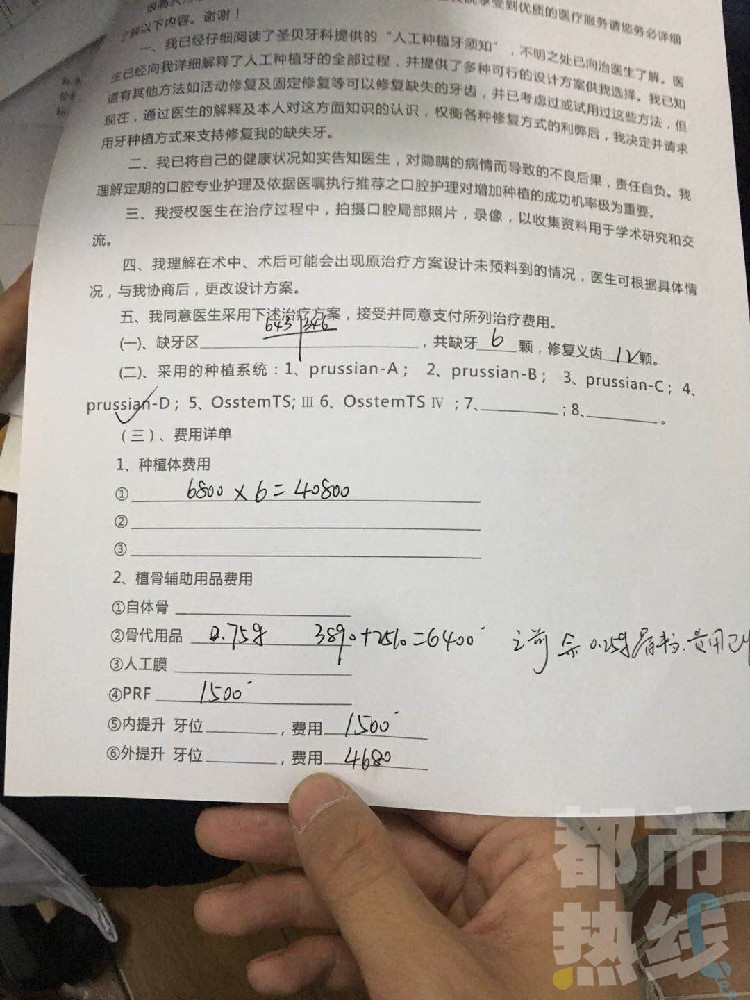 享受到优质的医疗服务请您务必详细
了解以下内容。谢谢！
一、我已经仔细阅读了圣贝牙科提供的“人工种植牙须知”，不明之处已向治医生了解。医
生已经向我详细解释了人工种植牙的全部过程，并提供了多种可行的设计方案供我选择。我已知
道有其他方法如活动修复及固定修复等可以修复缺失的牙齿，并已考虑过或试用过这些方法，但
现在，通过医生的解释及本人对这方面知识的认识，权衡各种修复方式的利弊后，我决定并请求
用牙种植方式来支持修复我的缺失牙。
二、我已将自己的健康状况如实告知医生，对隐瞒的病情而导致的不良后果，责任自负。我
理解定期的口腔专业护理及依据医嘱执行推荐之口腔护理对增加种植的成功机率极为重要。
三、我授权医生在治疗过程中，拍摄口腔局部照片，录像，以收集资料用于学术研究和交
流。
四、我理解在术中、术后可能会出现原治疗方案设计未预料到的情况，医生可根据具体情
况，与我协商后，更改设计方案。
五、我同意医生采用下述治疗方案，接受并同意支付所列治疗费用。
(一)、缺牙区 643 346 ，共缺牙 6 颗，修复义齿 12 颗。
(二)、采用的种植系统：1、prussian-A； 2、prussian-B； 3、prussian-C；4、
prussian-D；5、OsstemTS; Ⅲ 6、OsstemTS Ⅳ ；7、 ；8、 。
（三）、费用详单
1、种植体费用
① 6800×6=40800
②
③
2、植骨辅助用品费用
①自体骨
②骨代用品 0.75g 3890+2510=6400 之前余0.25g骨粉.费用已
③人工膜
④PRF 1500
⑤内提升 牙位 ，费用 1500
⑥外提升 牙位 ，费用 4680
都市
热线